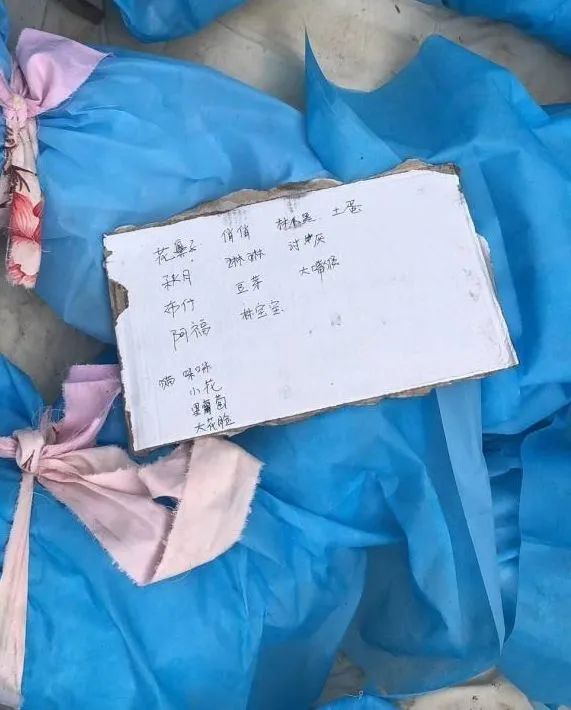 花臭子 俏俏 林小黑 土蛋
秋月 琳琳 讨 灰
布什 豆芽 大嘴猴
阿福 林宝宝
猫 咪咪
小花
黑葡萄
大花脸